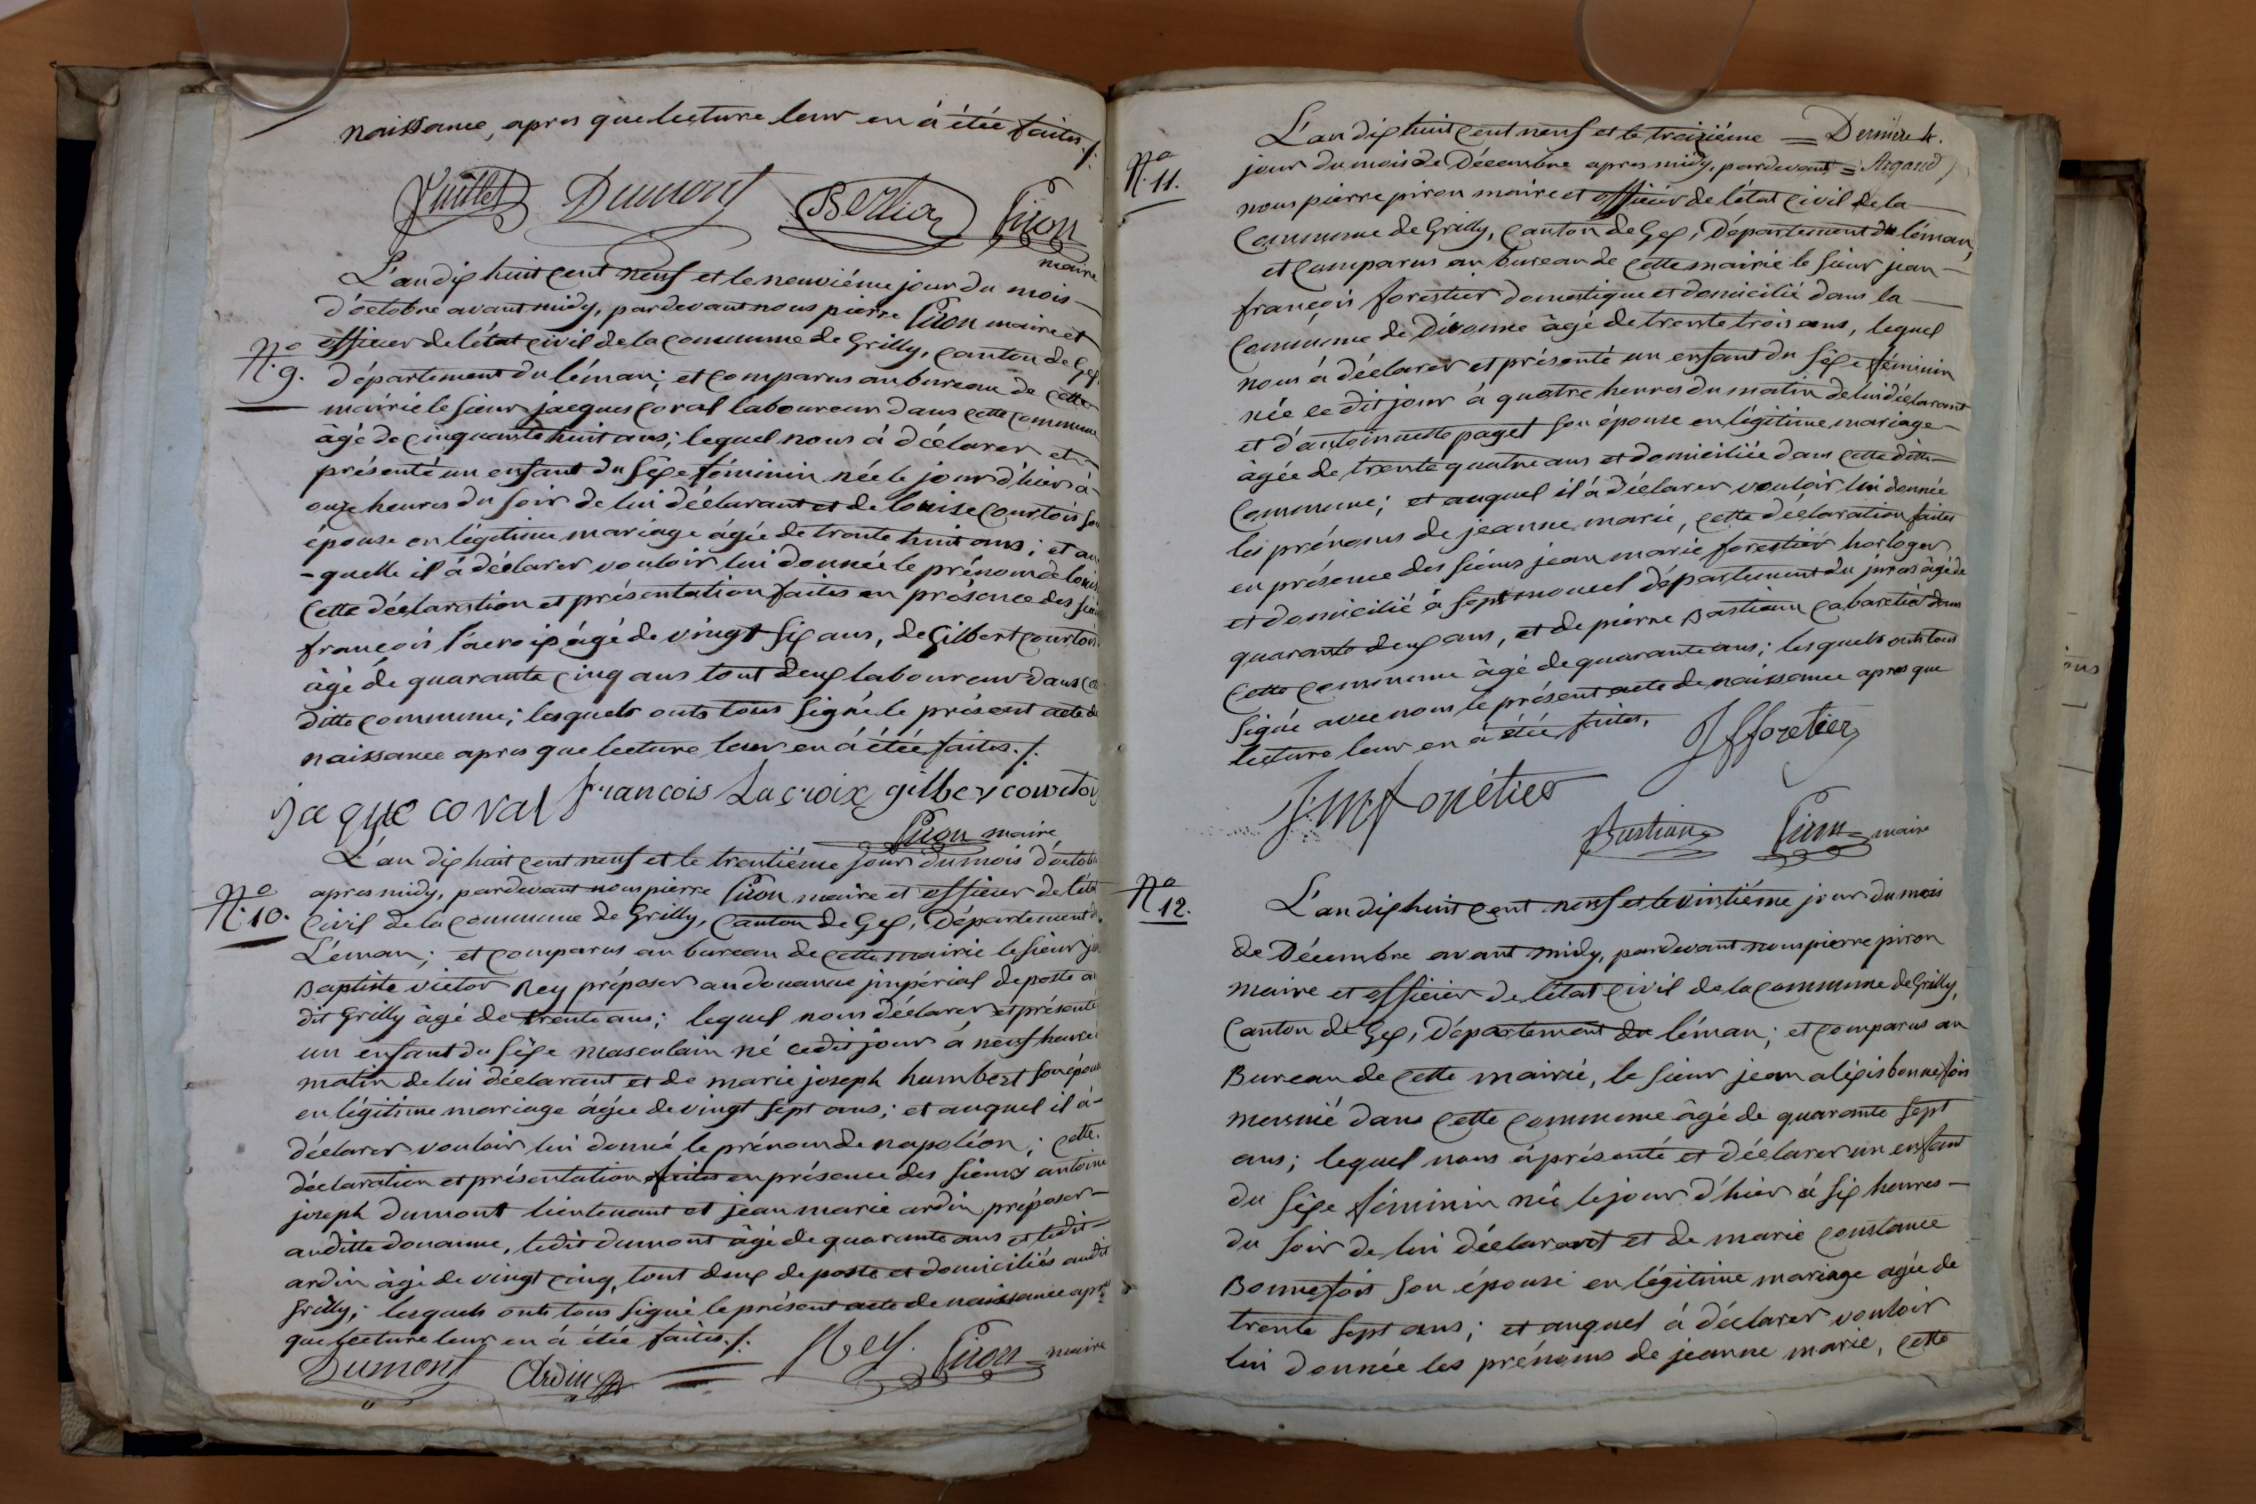 naissance, apres que lecture leur en á étée faites ./.
Vuillet Dumont Piron
maire
L'an dix huit cent neuf et le neuviéme jour du mois
d'octobre avant midy, pardevant nous pierre Piron maire et
officier de l'état civil de la commune de Grilly, canton de Gex,
N.o 9.
département du léman; et comparus au bureau de cette
mairie le sieur jacques coral laboureur dans cette commune
âgé de cinquante huit ans; lequel nous á déclarer et
présenté un enfant du sexe féminin née le jour d'hier à
onze heures du soir de lui déclarant et de louise Courtois son
épouse en légitime mariage âgée de trente huit ans; et au
-quelle il á déclarer vouloir lui donnée le prénom de louise
Cette déclaration et présentation faites en présence des sieurs
françois lacroix âgé de vingt six ans, de Gilbert Courtois
âgé de quarante cinq ans tout deux laboureur dans ce
ditte commune; lesquels onts tous signé le présent acte de
naissance apres que lecture leur en á étée faites ./.
jaque coval francois Lacroix gilber courtoy
Piron maire
L'an dix huit cent neuf et le trentiéme jour du mois d'octobre
apres midy, pardevant nous pierre Piron maire et officier de l'état
N.o 10.
Civil de la commune de Grilly, Canton de Gex, Département du
Léman; et comparus au bureau de cette mairie le sieur jn
Baptiste victor Rey préposer au douanne jmpérial de poste au
dit Grilly âgé de trente ans; lequel nous déclarer et présenté
un enfant du sexe masculain né cedit jour á neuf heures
matin de lui déclarant et de marie joseph humbert son épouse
en légitime mariage âgée de vingt sept ans; et auquel il á
déclarer vouloir lui donné le prénom de napoléon; cette
déclaration et présentation faites en présence des sieurs antoine
joseph dumont lieutenant et jean marie ardin préposer
auditte douanne, ledit dumont âgé de quarante ans et ledit
ardin âgé de vingt cinq, tout deux de poste et domiciliés audit
Grilly; lesquels onts tous signé le présent acte de naissance apres
que lecture leur en á étée faites ./.
Dumont Ardin Rey. Piron maire
L'an dix huit cent neuf et le treiziéme = Derniére f.
N.o 11.
jour du mois de Décembre apres midy, pardevant = Argand
nous pierre piron maire et officier de l'état Civil de la
Commune de Grilly, Canton de Gex, Département du léman,
et comparus au bureau de cette mairie le sieur jean
françois forestier domestique et domicilié dans la
Commune de Divonne âgé de trente trois ans, lequel
nous á déclarer et présenté un enfant du sexe féminin
née ce dit jour á quatre heures du matin de lui déclarant
et d'antoinette paget son épouse en légitime mariage
âgée de trente quatre ans et domiciliée dans cette ditte
Commune; et auquel il á déclarer vouloir lui donnée
les prénoms de jeanne marie, cette déclaration faites
en présence des sieurs jean marie forestier horloger
et domicilié á septmoncel département du juras âgé de
quarante deux ans, et de pierre Bastian cabaretier dans
cette commune âgé de quarante ans; lesquels onts tous
signé avec nous le présent acte de naissance apres que
lecture leur en á étée faites.
J f foretier
J: M foretier
Bastian Piron maire
N.o 12.
L'an dix huit cent neuf et le vintiéme jour du mois
de Décembre avant midy, pardevant nous pierre piron
maire et officier de l'état Civil de la commune de Grilly,
Canton de Gex, Département du léman; et comparus au
Bureau de cette mairie, le sieur jean aléxis bonnefois
meunié dans cette commune âgé de quarante sept
ans; lequel nous á présenté et déclarer un enfant
du sexe féminin née le jour d'hier á six heures
du soir de lui déclarant et de marie constance
Bonnefois son épouse en légitime mariage agée de
trente sept ans; et auquel á déclarer vouloir
lui donnée les prénoms de jeanne marie, cette